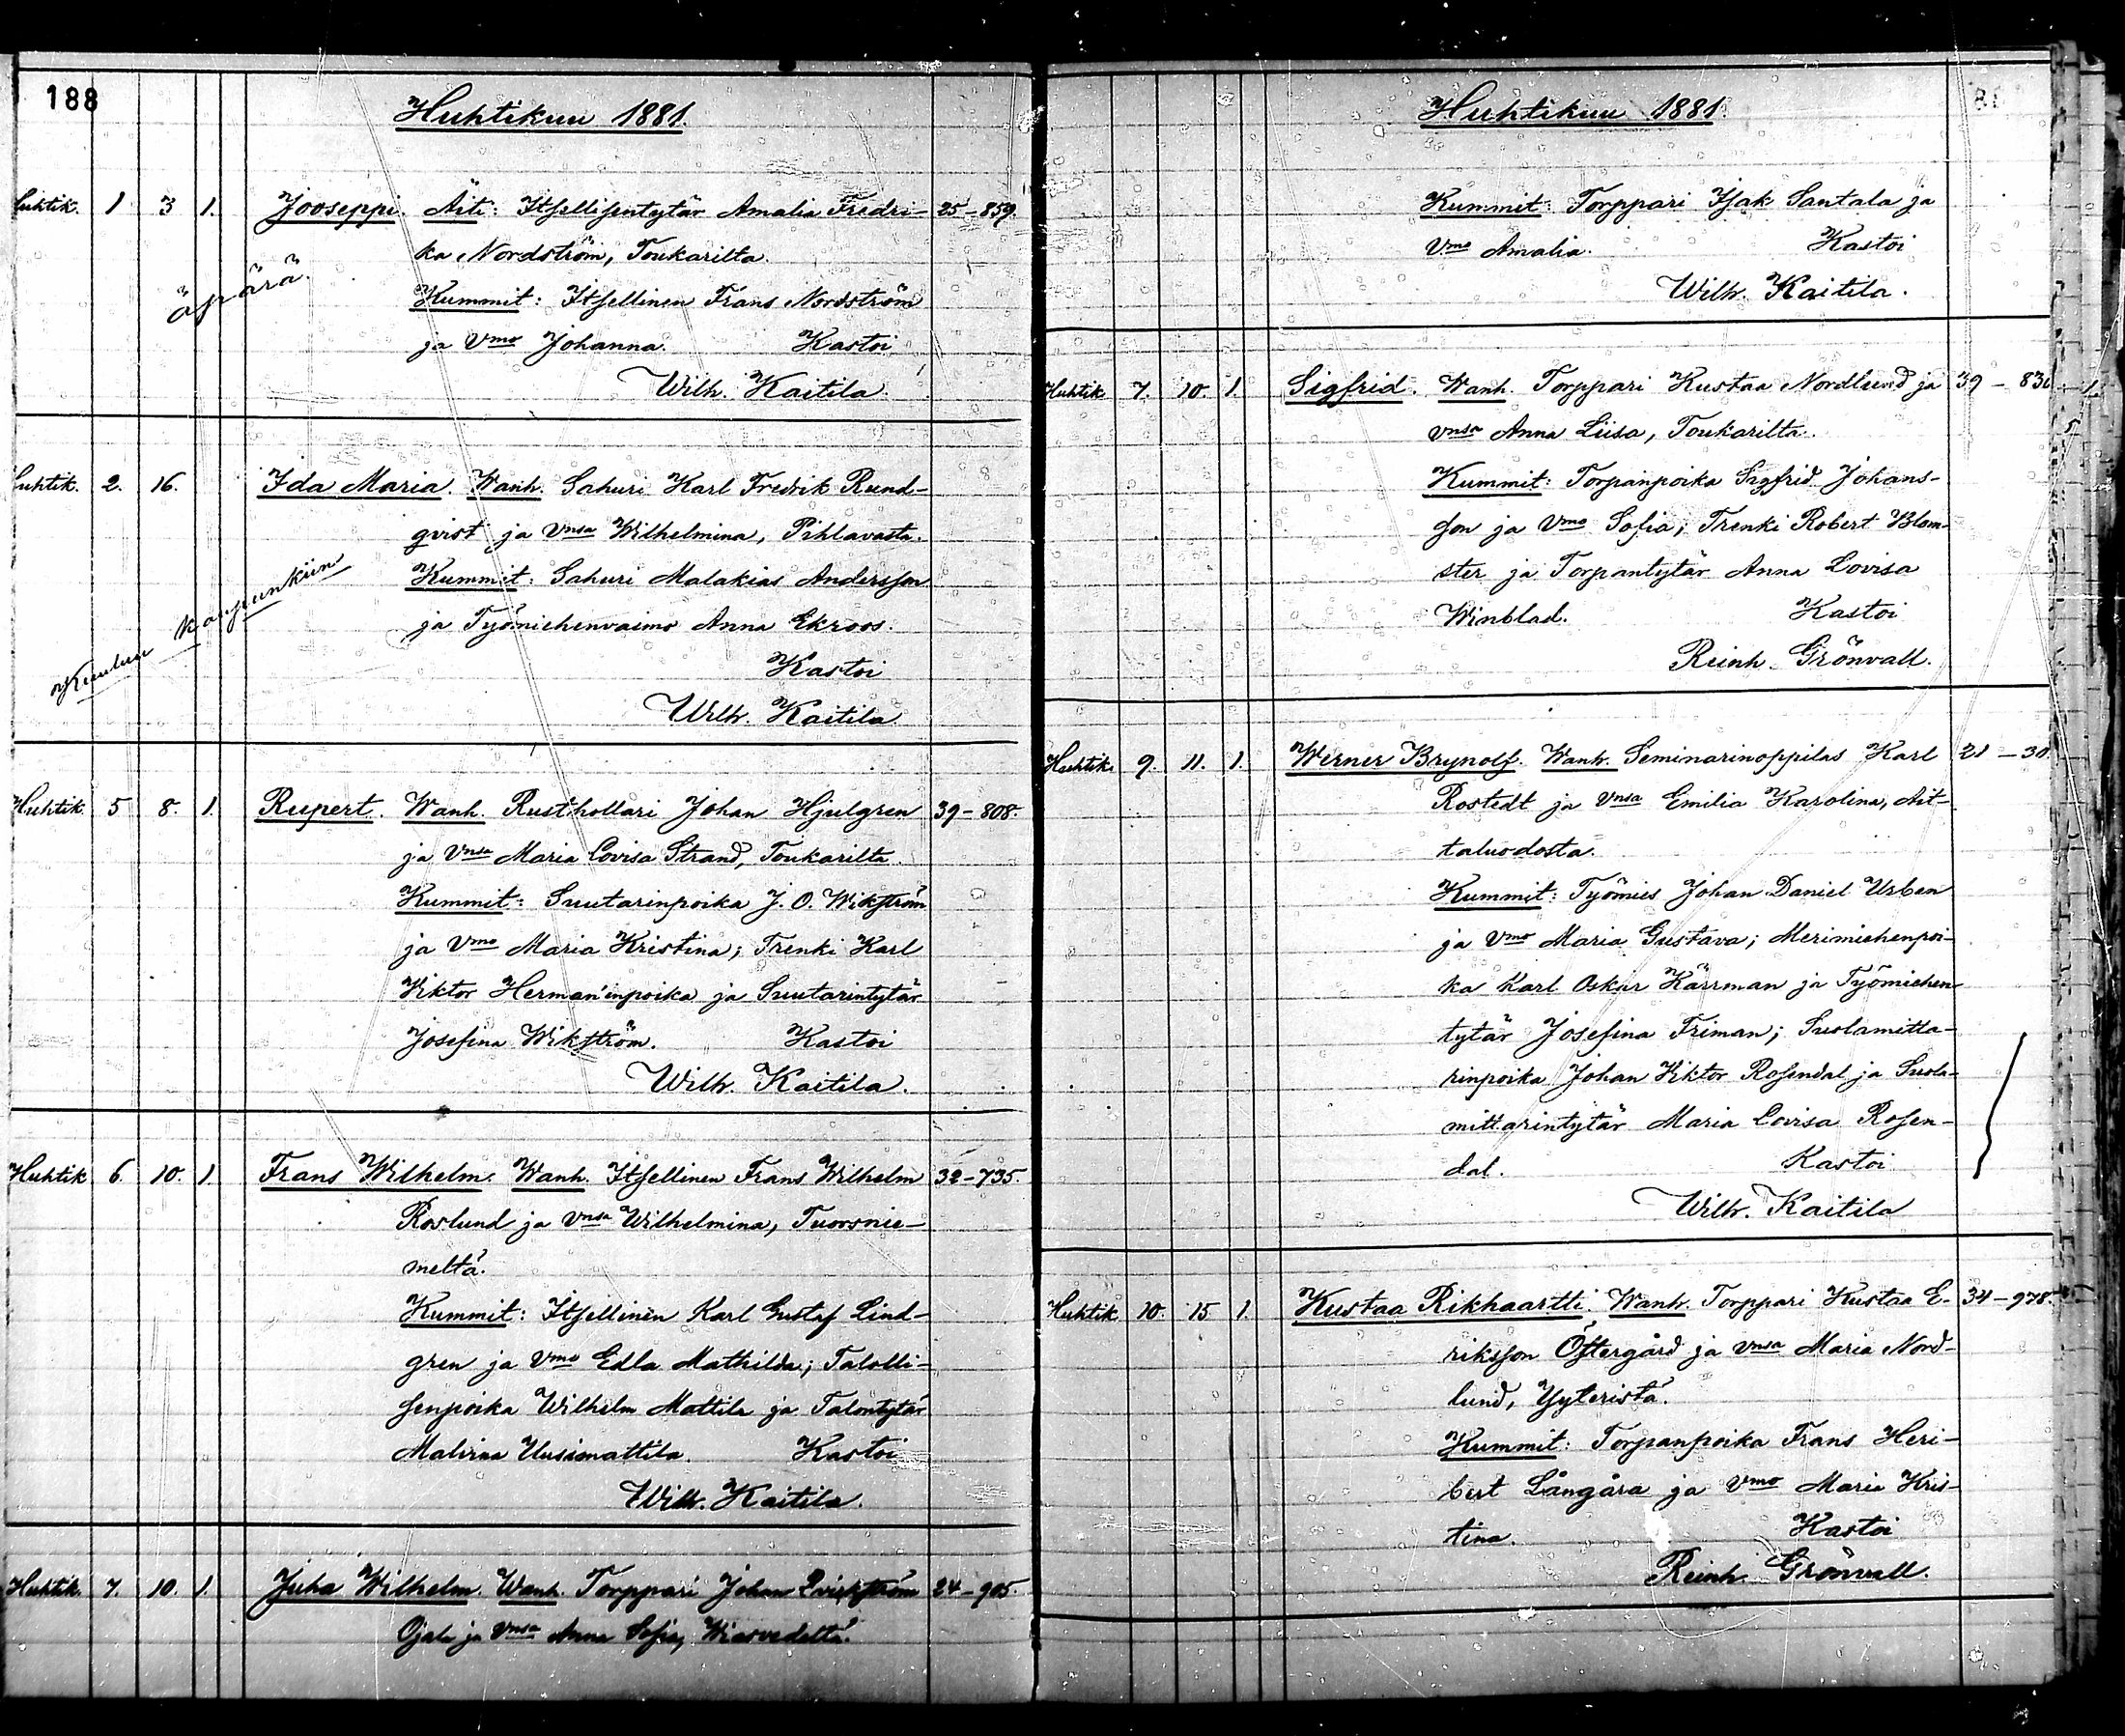 188
Huhtikuu 1881.
Huhtik. 1 3 1. Jooseppi. Äiti: Itsellisentytär Amalia Fredri- 25-859.
ka Nordström, Toukarilta.
äpärä.
Kummit: Itsellinen Frans Nordström
ja Vmo Johanna. Kastoi
Wilh. Kaitila.
Huhtik. 2. 16. Ida Maria. Wanh. Sahuri Karl Fredrik Rund-
qvist ja Vnsa Wilhelmina, Pihlavasta.
Kummit: Sahuri Malakias Andersson
ja Työmiehenvaimo Anna Ekroos.
Kuuluu kaupunkiin
Kastoi
Wilh. Kaitila
Huhtik. 5 8. 1. Rupert. Wanh. Rusthollari Johan Hjulgren 39-808.
ja Vnsa Maria Lovisa Strand, Toukarilta.
Kummit: Suutarinpoika J. O. Wikström
ja Vmo Maria Kristina; Trenki Karl
Viktor Herman'inpoika ja Suutarintytär
Josefina Wikström. Kastoi
Wilh. Kaitila.
Huhtik 6. 10. 1. Frans Wilhelm. Wanh. Itsellinen Frans Wilhelm 32-735.
Roslund ja Vnsa Wilhelmina, Tuorsnie-
meltä.
Kummit: Itsellinen Karl Gustaf Lind-
gren ja Vmo Edla Mathilda; Talolli-
senpoika Wilhelm Mattila ja Talontytär
Malvina Uusimattila. Kastoi
Wilh. Kaitila.
Huhtik. 7. 10. 1. Juha Wilhelm. Wanh. Torppari Johan 24-905.
Ojala ja Vnsa Anna Sofia, Wiasvedeltä.
Huhtikuu 1881.
Kummit: Torppari Isak Santala ja
Vmo Amalia. Kastoi
Wilh. Kaitila.
Huhtik 7. 10. 1. Sigfrid. Wanh. Torppari Kustaa Nordlund ja 39-
vnsa Anna Liisa, Toukarilta.
Kummit: Torpanpoika Sigfrid Johans-
son ja Vmo Sofia; Trenki Robert Blom-
ster ja Torpantytär Anna Lovisa
Winblad. Kastoi
Reinh. Grönvall.
Huhtik. 9. 11. 1. Werner Brynolf. Wanh. Seminarinoppilas Karl 21-30.
Rostedt ja Vnsa Emilia Karolina, Ait-
taluodosta.
Kummit: Työmies Johan Daniel Urben
ja Vmo Maria Gustava; Merimiehenpoi-
ka Karl Oskar Kärrman ja Työmiehen
tytär Josefina Friman; Suolamitta-
rinpoika Johan Viktor Rosendal ja Suola-
mittarintytär Maria Lovisa Rosen-
dal. Kastoi
Wilh. Kaitila
Huhtik 10. 15 1. Kustaa Rikhaartti. Wanh. Torppari Kustaa E- 34-978.
riksson Östergård ja vnsa Maria Nord-
lund, Yyteristä.
Kummit: Torpanpoika Frans Heri-
bert Långåra ja Vmo Maria Kris-
tina. Kastoi
Reinh. Grönvall.